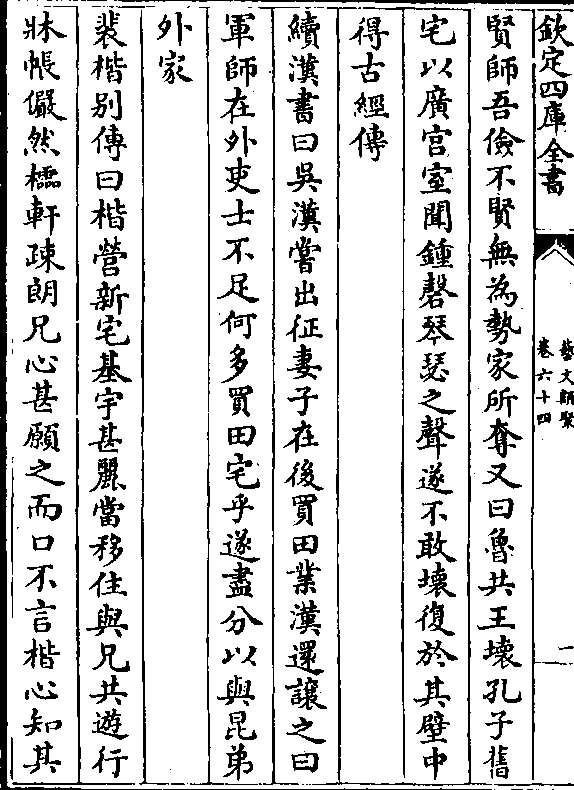 欽定四庫全書
藝文類聚
卷六十四
一
賢師吾儉不賢無為勢家所奪又曰魯共王壞孔子舊
宅以廣宫室聞鍾磬琴瑟之聲遂不敢壞復於其壁中
得古經傳
續漢書曰吳漢嘗出征妻子在後買田業漢還讓之曰
軍師在外吏士不足何多買田宅乎遂盡分以與昆弟
外家
裴楷别傳曰楷營新宅基宇甚麗當移住與兄共遊行
牀帳儼然櫺軒疎朗兄心甚願之而口不言楷心知其